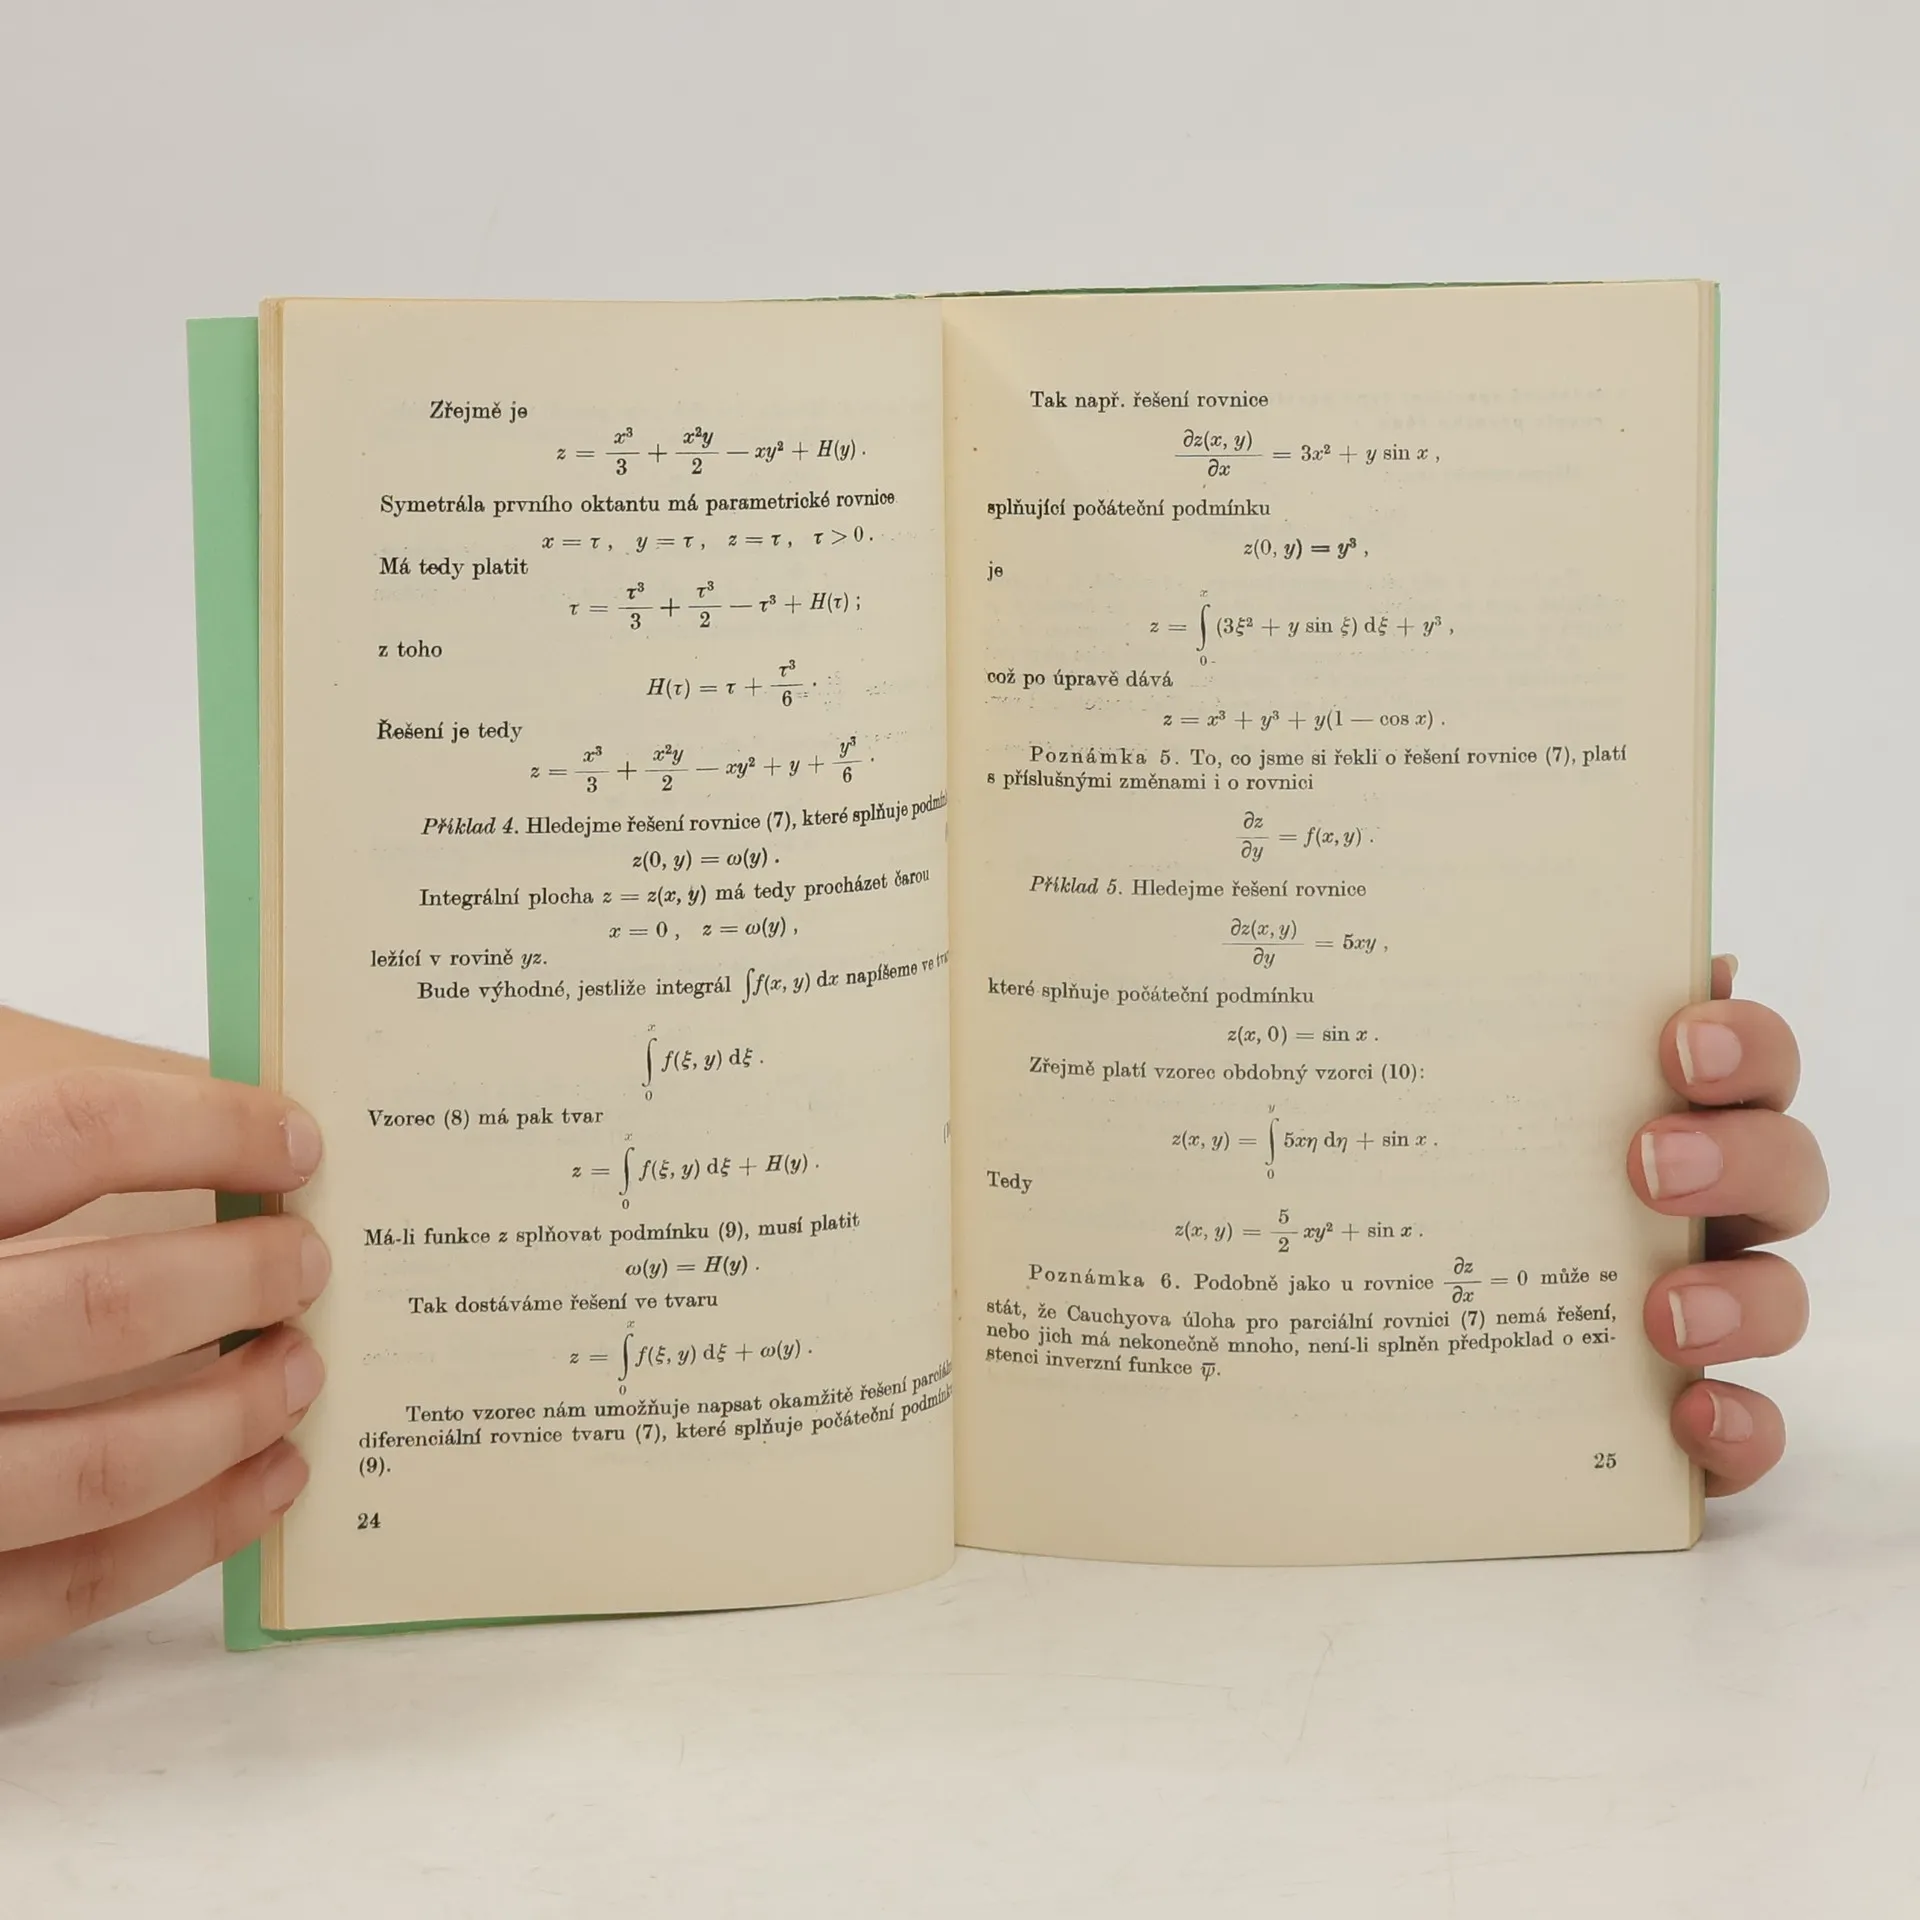 Zřejmě je
z = x³/3 + x²y/2 — xy² + H(y) .
Symetrála prvního oktantu má parametrické rovnice
x = τ , y = τ , z = τ , τ > 0 .
Má tedy platit
τ = τ³/3 + τ³/2 — τ³ + H(τ) ;
z toho
H(τ) = τ + τ³/6 .
Řešení je tedy
z = x³/3 + x²y/2 — xy² + y + y³/6 .
Příklad 4. Hledejme řešení rovnice (7), které splňuje
z(0, y) = ω(y) .
Integrální plocha z = z(x, y) má tedy procházet čarou
x = 0 , z = ω(y) ,
ležící v rovině yz.
Bude výhodné, jestliže integrál ∫f(x, y) dx napíšeme ve
∫₀ˣ f(ξ, y) dξ .
Vzorec (8) má pak tvar
z = ∫₀ˣ f(ξ, y) dξ + H(y) .
Má-li funkce z splňovat podmínku (9), musí platit
ω(y) = H(y) .
Tak dostáváme řešení ve tvaru
z = ∫₀ˣ f(ξ, y) dξ + ω(y) .
Tento vzorec nám umožňuje napsat okamžitě řešení
diferenciální rovnice tvaru (7), které splňuje počáteční
(9).
24
Tak např. řešení rovnice
∂z(x, y)/∂x = 3x² + y sin x ,
splňující počáteční podmínku
z(0, y) = y³ ,
je
z = ∫₀ˣ (3ξ² + y sin ξ) dξ + y³ ,
což po úpravě dává
z = x³ + y³ + y(1 — cos x) .
Poznámka 5. To, co jsme si řekli o řešení rovnice (7), platí
s příslušnými změnami i o rovnici
∂z/∂y = f(x, y) .
Příklad 5. Hledejme řešení rovnice
∂z(x, y)/∂y = 5xy ,
které splňuje počáteční podmínku
z(x, 0) = sin x .
Zřejmě platí vzorec obdobný vzorci (10):
z(x, y) = ∫₀ʸ 5xη dη + sin x .
Tedy
z(x, y) = 5/2 xy² + sin x .
Poznámka 6. Podobně jako u rovnice ∂z/∂x = 0 může se
stát, že Cauchyova úloha pro parciální rovnici (7) nemá řešení,
nebo jich má nekonečně mnoho, není-li splněn předpoklad o exi-
stenci inverzní funkce ψ̄.
25